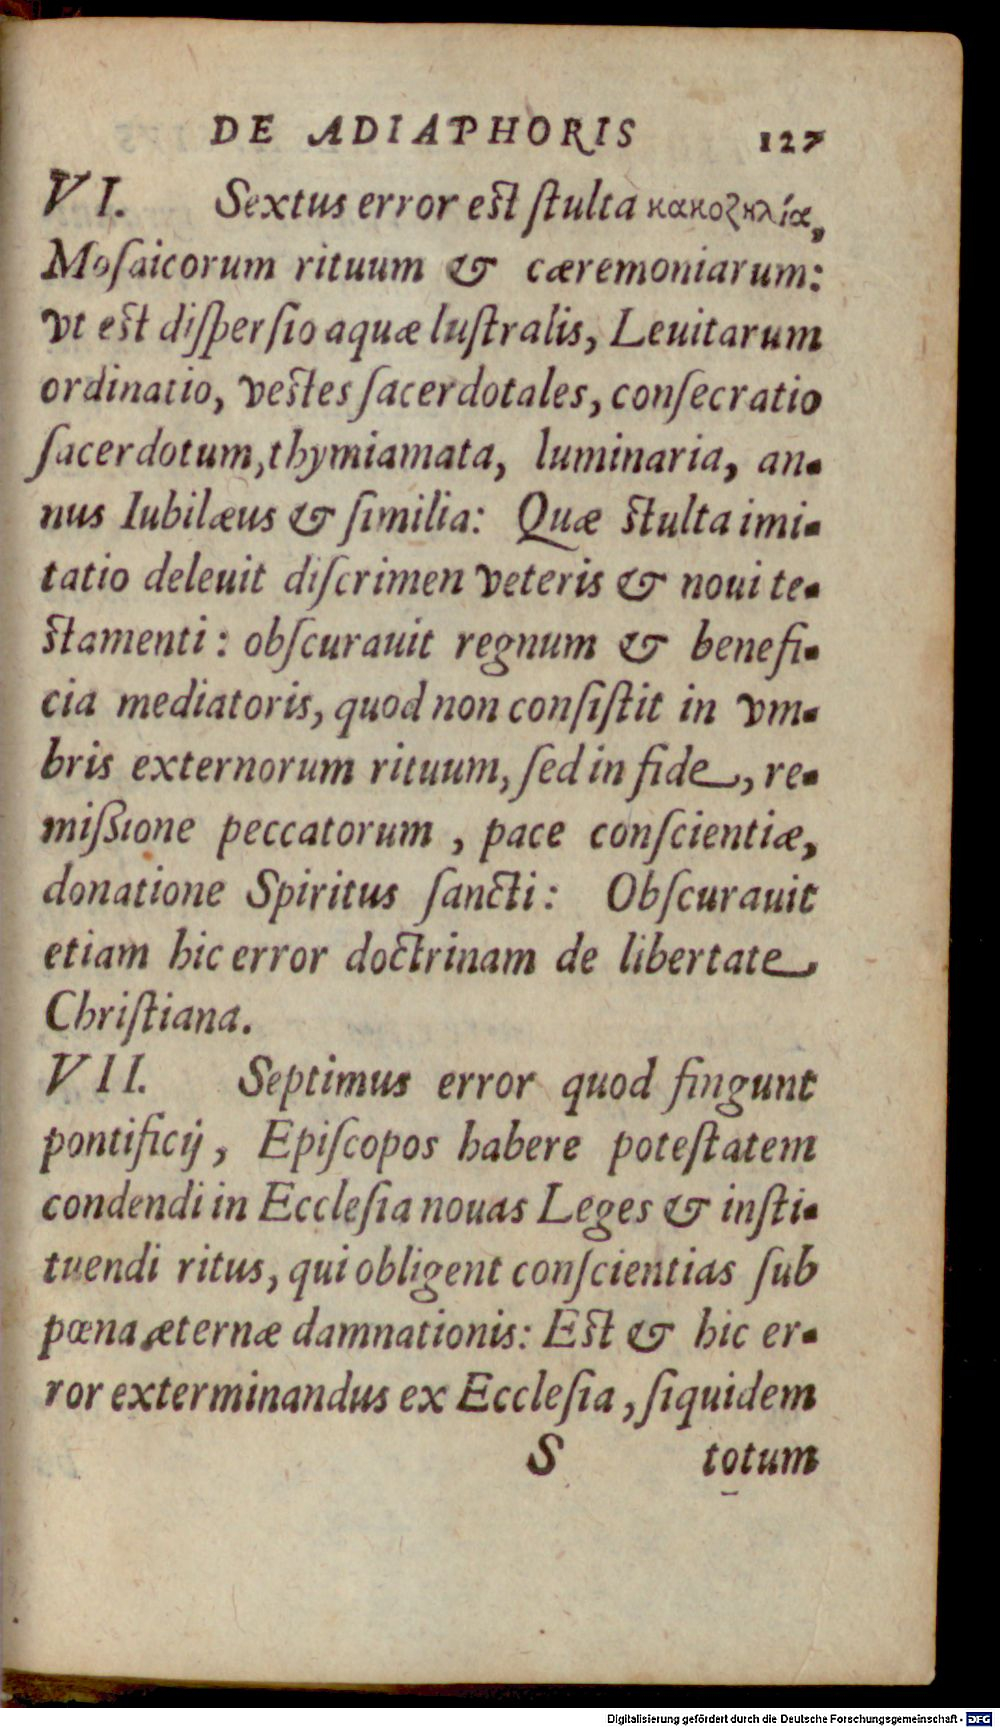 DE ADIAPHORIS 127
VI. Sextus error est ſtulta κακοζηλία,
Moſaicorum rituum & cæremoniarum:
vt est diſperſio aquæ luſtralis, Leuitarum
ordinatio, vestes ſacerdotales, conſecratio
ſacerdotum, thymiamata, luminaria, an-
nus Iubilæus & ſimilia: Quæ stulta imi-
tatio deleuit diſcrimen veteris & noui te-
stamenti: obſcurauit regnum & benefi-
cia mediatoris, quod non conſiſtit in vm-
bris externorum rituum, ſed in fide, re-
miſsione peccatorum, pace conſcientiæ,
donatione Spiritus ſancti: Obſcurauit
etiam hic error doctrinam de libertate
Chriſtiana.
VII. Septimus error quod fingunt
pontificij, Epiſcopos habere poteſtatem
condendi in Eccleſia nouas Leges & inſti-
tuendi ritus, qui obligent conſcientias ſub
pœna æternæ damnationis: Est & hic er-
ror exterminandus ex Eccleſia, ſiquidem
S totum
Digitalisierung gefördert durch die Deutsche Forschungsgemeinschaft - DFG